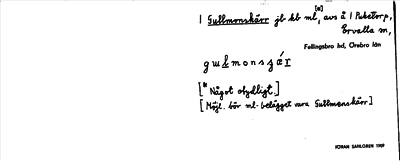 1 Gullmonskärr jb kb ml,[*] avs å 1 Puketorp,
Ervalla sn,
Fellingsbro hd, Örebro län
gulmonsʒǽr
[* Något otydligt.]
[Möjl. bör ml-belägget vara Gullmonskärr]
GÖRAN SAHLGREN 1969